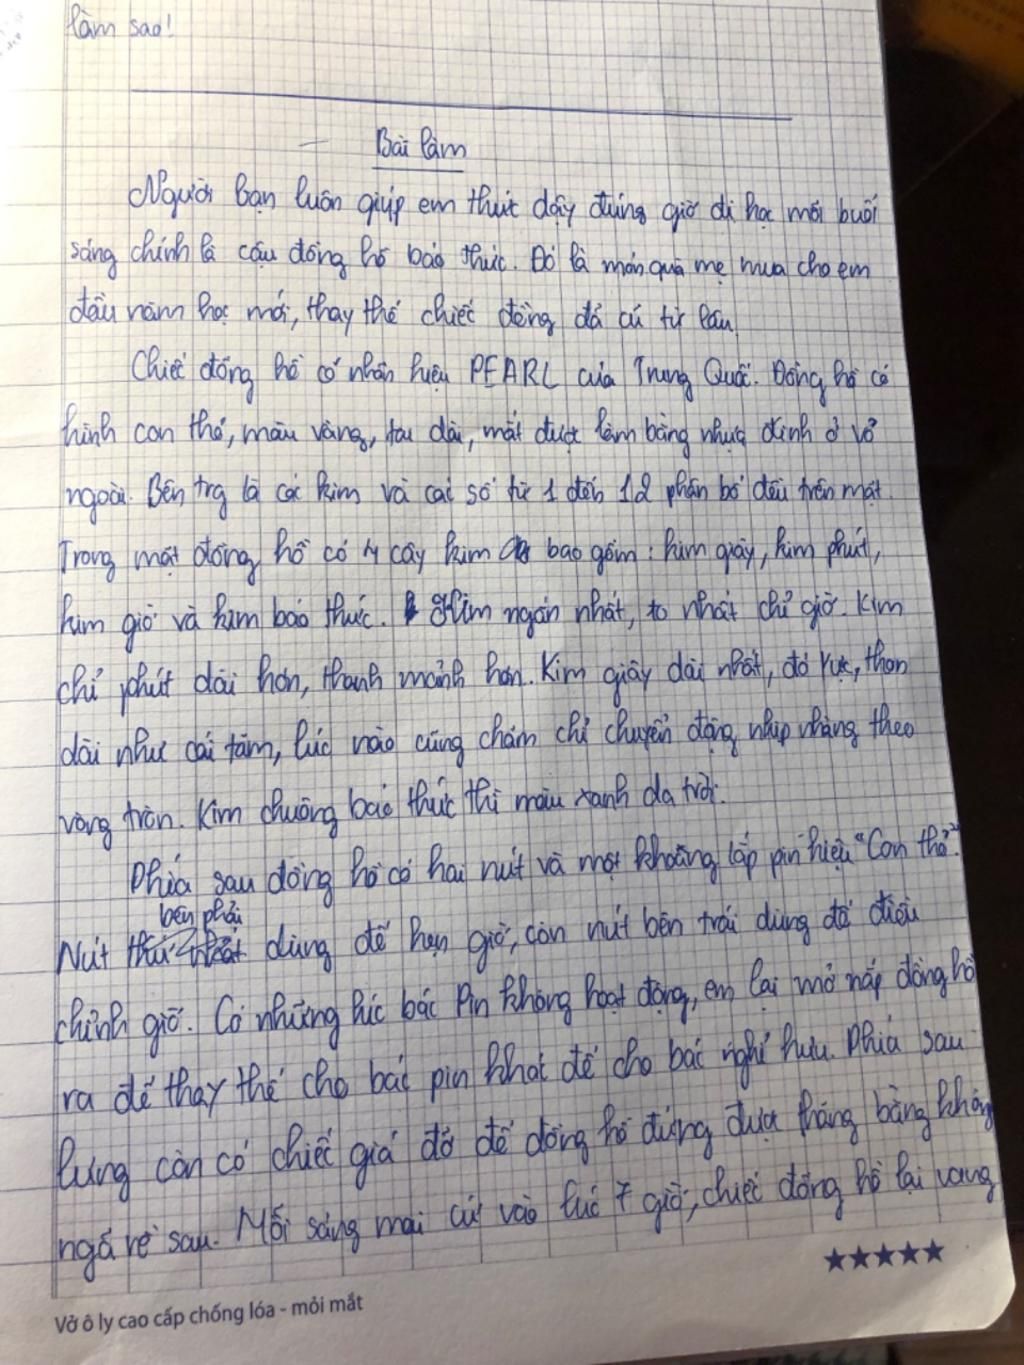 làm sao!
Bài làm
Người bạn luôn giúp em thức dậy đúng giờ đi học mỗi buổi
sáng chính là cậu đồng hồ báo thức. Đó là món quà mẹ mua cho em
đầu năm học mới, thay thế chiếc đồng đã cũ từ lâu.
Chiếc đồng hồ có nhãn hiệu PEARL của Trung Quốc. Đồng hồ có
hình con thỏ, màu vàng, tai dài, mắt được làm bằng nhựa dính ở vỏ
ngoài. Bên trg là các kim và các số từ 1 đến 12 phân bố đều trên mặt.
Trong mặt đồng hồ có 4 cây kim bao gồm: kim giây, kim phút,
kim giờ và kim báo thức. Kim ngắn nhất, to nhất chỉ giờ. Kim
chỉ phút dài hơn, thanh mảnh hơn. Kim giây dài nhất, đỏ rực, thon
dài như cái tăm, lúc nào cũng chăm chỉ chuyển động nhịp nhàng theo
vòng tròn. Kim chuông báo thức thì màu xanh da trời.
Phía sau đồng hồ có hai nút và một khoảng lắp pin hiệu "Con thỏ".
bên phải
Nút thứ nhất dùng để hẹn giờ, còn nút bên trái dùng để điều
chỉnh giờ. Có những lúc bác Pin không hoạt động, em lại mở nắp đồng hồ
ra để thay thế cho bác pin khác để cho bác nghỉ hưu. Phía sau
lưng còn có chiếc giá đỡ để đồng hồ đứng dựa thăng bằng không
ngã về sau. Mỗi sáng mai cứ vào lúc 7 giờ, chiếc đồng hồ lại vang
★★★★★
Vở ô ly cao cấp chống lóa - mỏi mắt